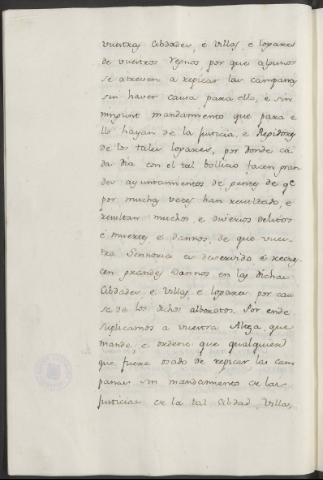 vuestras Cibdades, e Villas, e logares
de vuestros Reynos por que algunos
se atreven a repicar las campanas
sin haver causa para ello, e sin
ningunt mandamiento que para e
llo hayan de la justicia, e Regidores
de los tales logares, por donde ca
da dia con el tal bollicio facen gran
des ayuntamientos de gentes de qe
por muchas veces han resultado, e
resultan muchos, e diversos delitos
e muertes e dannos, de que vues-
tra Sennoria es deservido e recres-
cen grandes dannos en las dichas
Cibdades e Villas, e logares por cau
sa de los dichos alborotos. Por ende
suplicamos a vuestra Alteza que
mande, e ordene que qualquiera
que fuere osado de repicar las cam
panas sin mandamiento de las
justicias de la tal Cibdad, Villas,